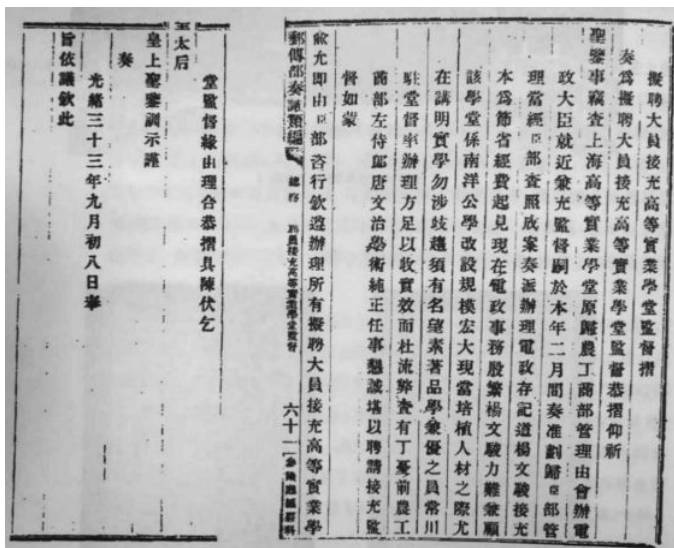 擬聘大員接充高等實業學堂監督摺
奏爲擬聘大員接充高等實業學堂監督恭摺仰祈
聖鑒事竊查上海高等實業學堂原歸農工商部管理由會辦電
政大臣就近兼充監督嗣於本年二月間奏准劃歸臣部管
理當經臣部查照成案奏派辦理電政存記道楊文駿接充
本爲節省經費起見現在電政事務殷繁楊文駿力難兼顧
該學堂係南洋公學改設規模宏大現當培植人材之際尤
在講明實學勿涉歧趨須有名望素著品學兼優之員常川
駐堂督率辦理方足以收實效而杜流弊查有丁憂前農工
商部左侍郎唐文治學術純正任事懇誠堪以聘請接充監
督如蒙
俞允即由臣部咨行欽遵辦理所有擬聘大員接充高等實業學
郵傳部奏議類編
總務
聘員接充高等實業學堂監督
六十一
堂監督緣由理合恭摺具陳伏乞
皇太后
皇上聖鑒訓示謹
奏
光緒三十三年九月初八日奉
旨依議欽此